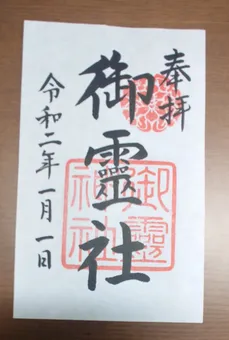 奉拝
御靈社
令和二年一月一日
御靈
神社